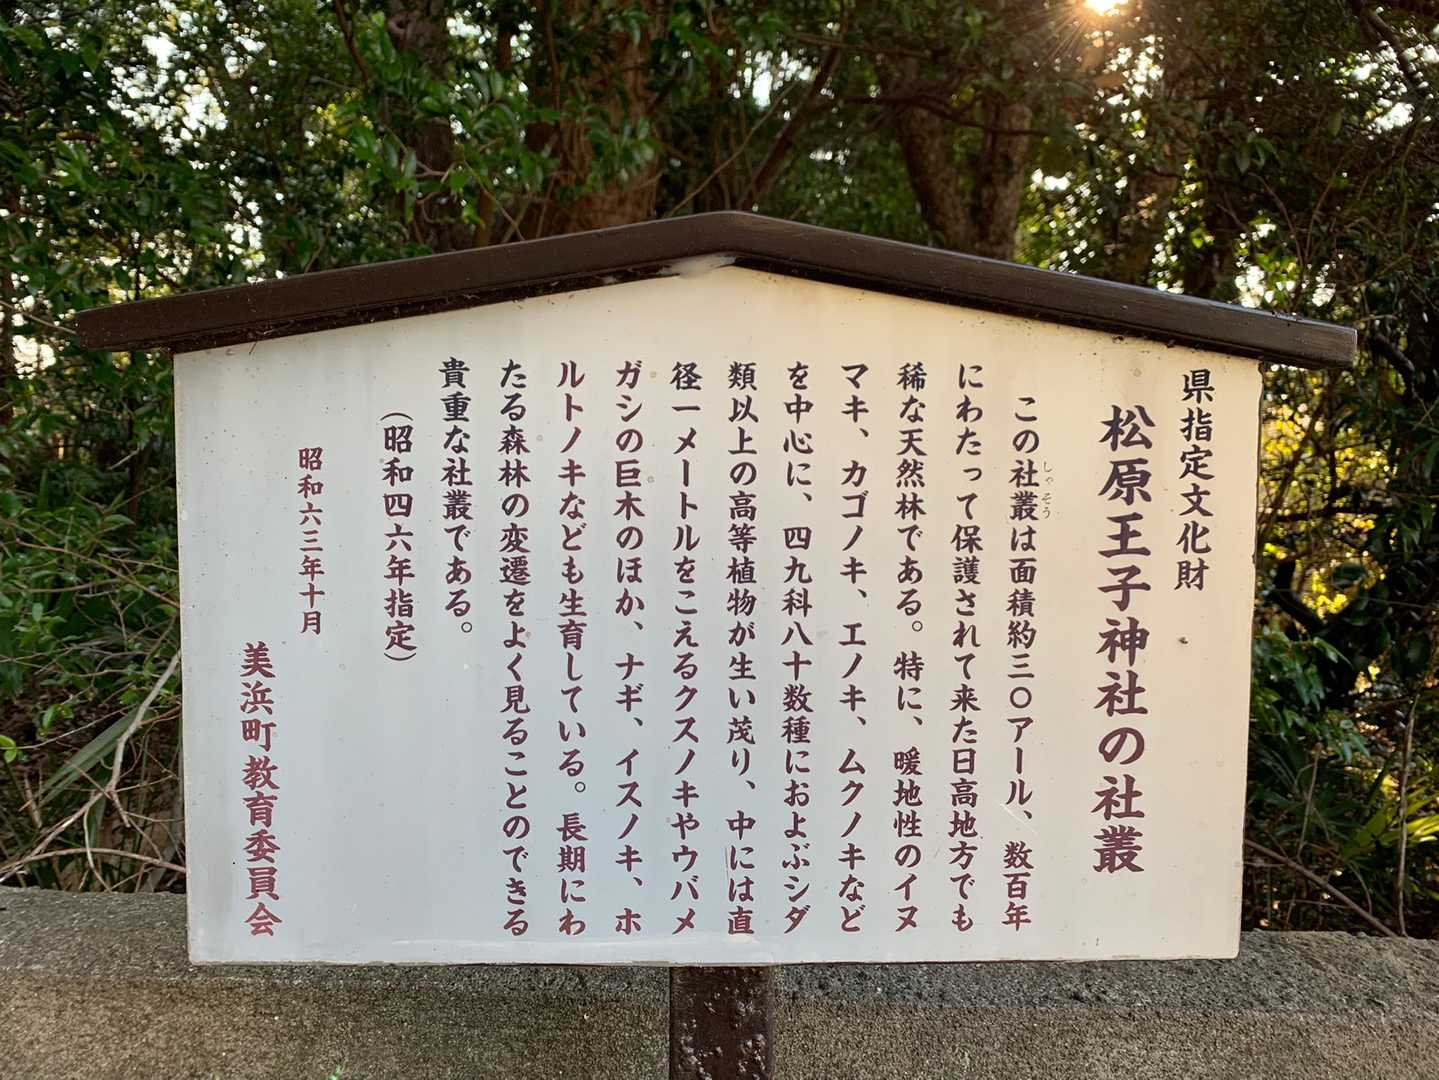 県指定文化財
松原王子神社の社叢
この社叢は面積約三〇アール、数百年
しゃそう
にわたって保護されて来た日高地方でも
稀な天然林である。特に、暖地性のイヌ
マキ、カゴノキ、エノキ、ムクノキなど
を中心に、四九科八十数種におよぶシダ
類以上の高等植物が生い茂り、中には直
径一メートルをこえるクスノキやウバメ
ガシの巨木のほか、ナギ、イスノキ、ホ
ルトノキなども生育している。長期にわ
たる森林の変遷をよく見ることのできる
貴重な社叢である。
（昭和四六年指定）
昭和六三年十月
美浜町教育委員会